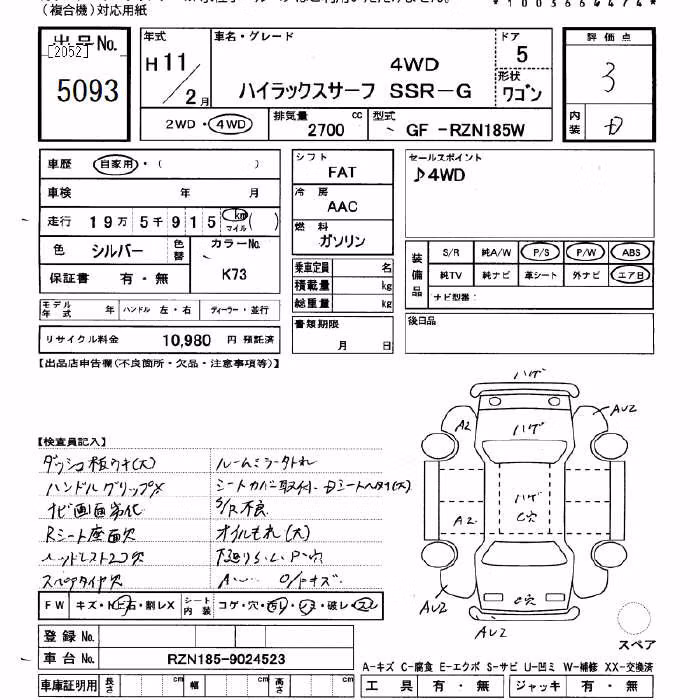 （複合機）対応用紙
出品No.
[2052]
5093
年式
H11/2月
車名・グレード
4WD
ハイラックスサーフ SSR-G
ドア
5
形状
ワゴン
2WD・4WD
排気量
2700 cc
型式
GF -RZN185W
評価点
3
内装
D
車歴 自家用・（ ）
車検 年 月
走行 19万5千915 km マイル ( )
色 シルバー 色替
カラーNo.
K73
保証書 有・無
モデル年式 年 ハンドル 左・右 ディーラー・並行
リサイクル料金 10,980 円 預託済
シフト
FAT
冷房
AAC
燃料
ガソリン
乗車定員 名
積載量 kg
総重量 kg
書類期限
月 日
セールスポイント
♪4WD
装備品
S/R 純A/W P/S P/W ABS
純TV 純ナビ 革シート 外ナビ エアB
ナビ型番：
後日品
【出品店申告欄(不良箇所・欠品・注意事項等)】
【検査員記入】
ダッシュ板ワキ(大)
ハンドルグリップX
ナビ画面劣化
Rシート座面穴
ヘッドレスト2コ穴
スペアタイヤ欠
ルームミラー外れ
S/R不良
オイルもれ(大)
FW キズ・トビ石・割レX シート内装 コゲ・穴・汚レ・シミ・破レ・スレ
ハゲ
ハゲ
ハゲ
C穴
C穴
A2
A2
AU2
AU2
AU2
AU2
スペア
登録No.
車台No. RZN185-9024523
車庫証明用 長さ cm 幅 cm 高さ cm
A-キズ C-腐食 E-エクボ S-サビ U-凹ミ W-補修 XX-交換済
工具 有・無 ジャッキ 有・無